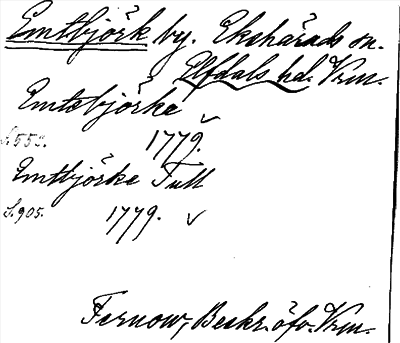 Emtbjörk by. Ekshärads sn.
Elfdals hd. Vrm.
Emtebjörke
S. 553. 1779.
Emtbjörke Tull
S. 905. 1779.
Fernow, Beskr. öfv. Vrm.